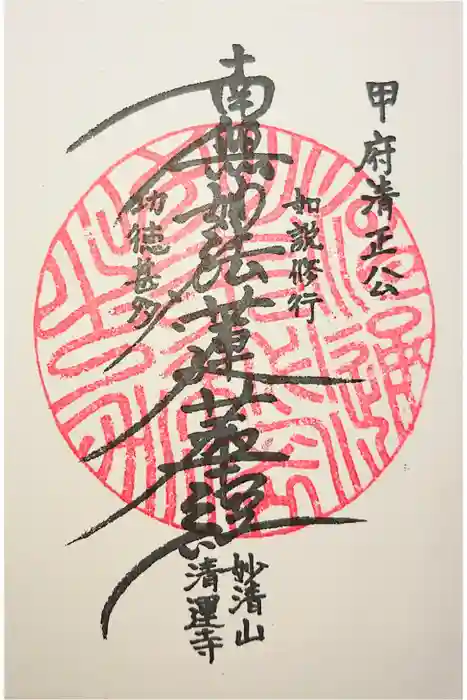 甲府清正公
如説修行
南無妙法蓮華経
功徳甚多
妙清山
清運寺